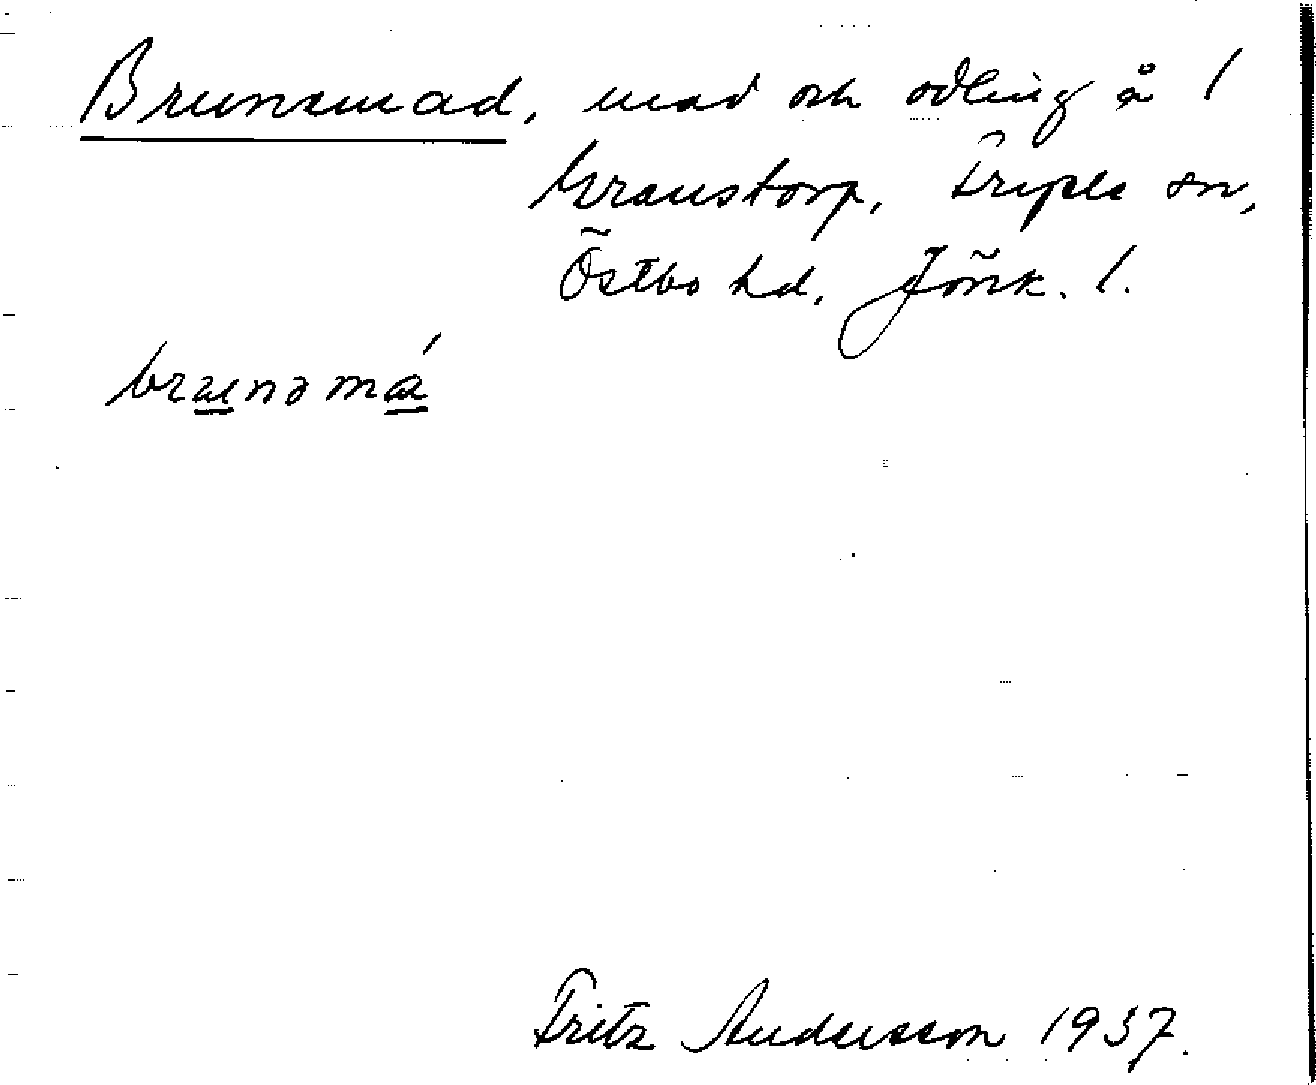 Brunemad, mad och odling å 1
Granstorp, Fryele sn,
Östbo hd, Jönk. l.
brunəmá
Fritz Andersson 1937.